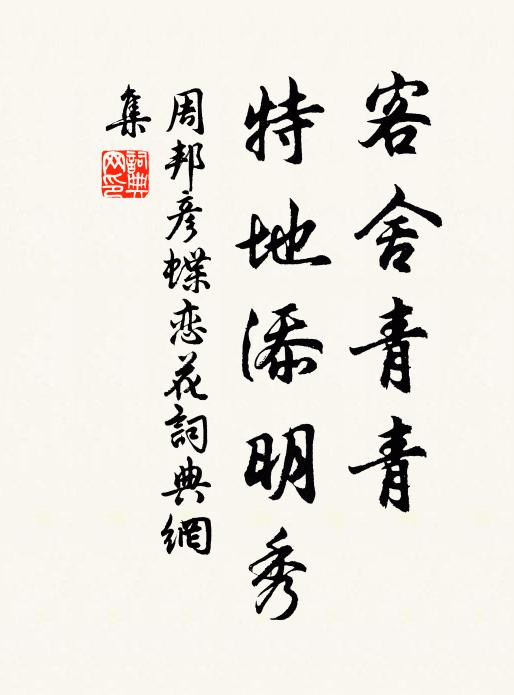 客舍青青
特地添明秀
周邦彦蝶恋花詞典網
集
詞典
网印